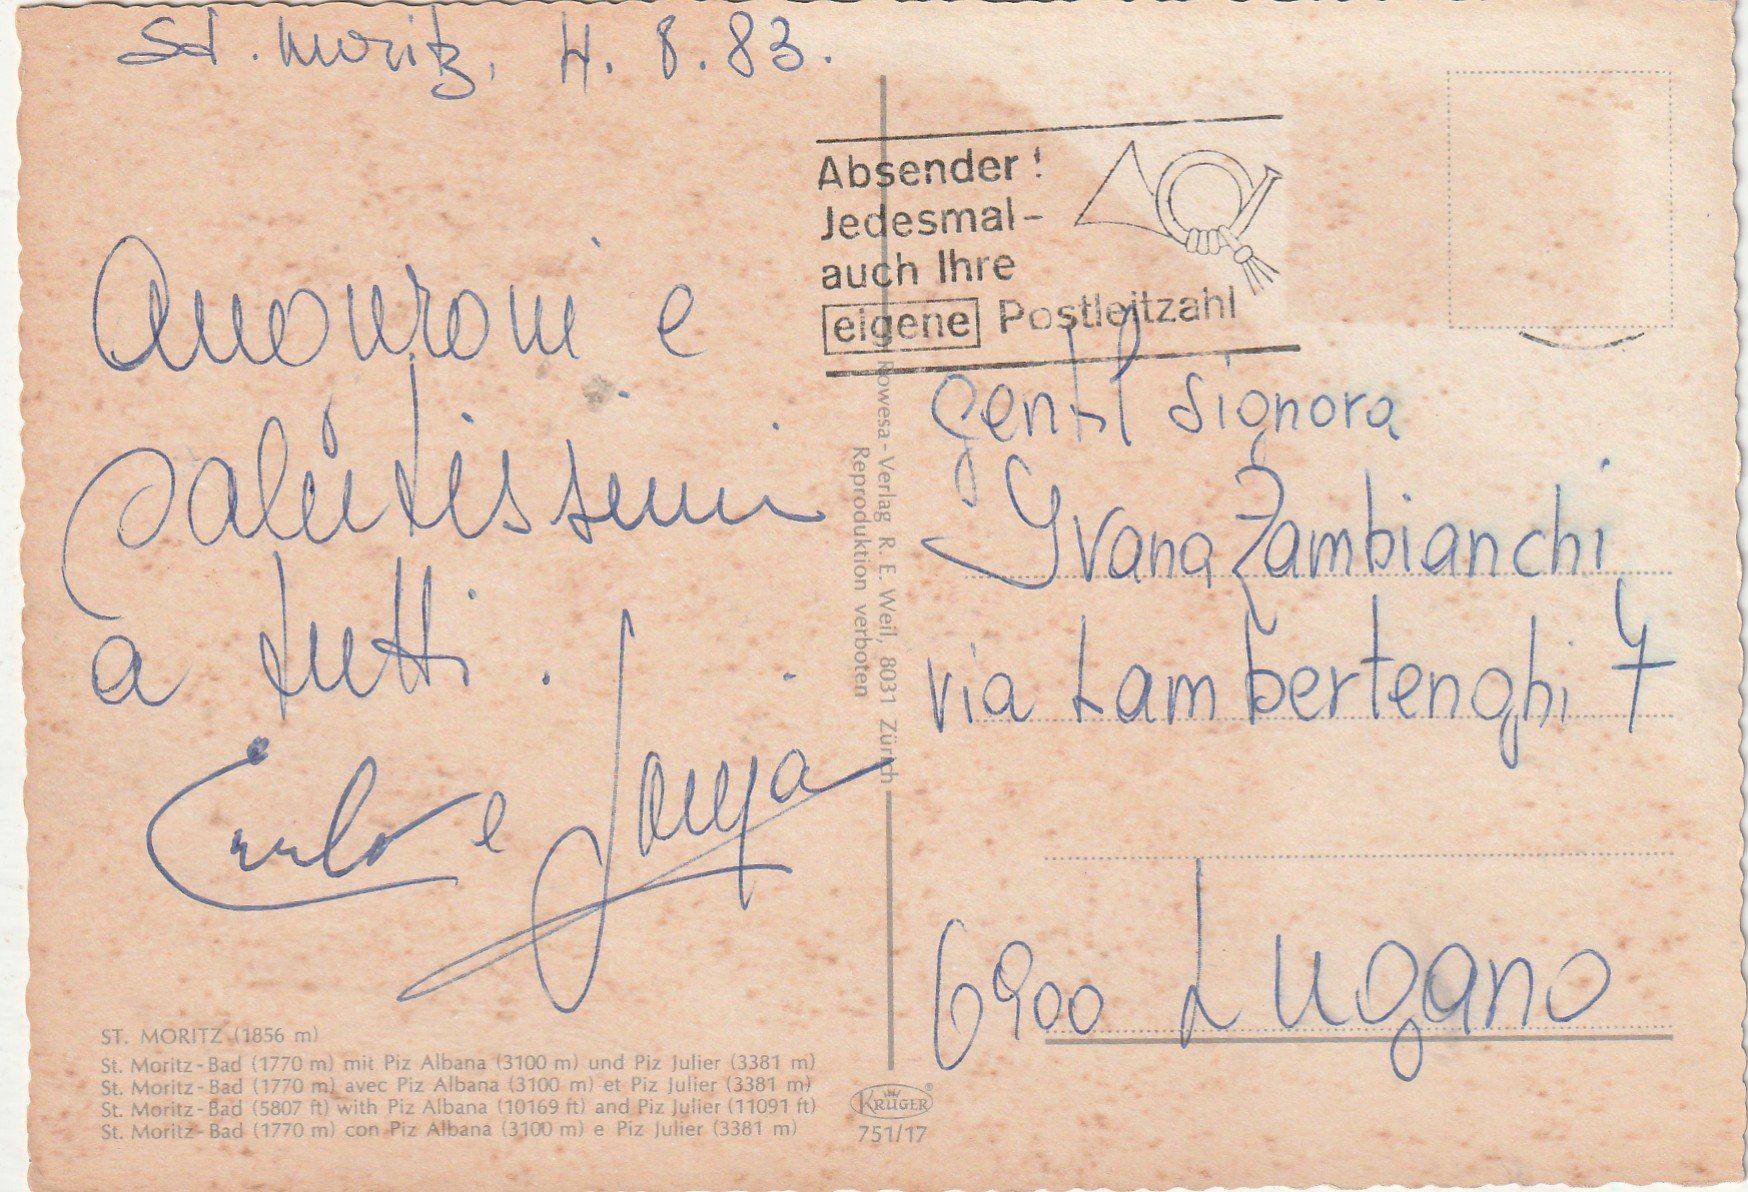 St. Moritz, 4. 8. 83.
Absender!
Jedesmal-
auch Ihre
eigene Postleitzahl
e
salutissimi
a tutti.
Carlo e
Gentil Signora
Yvana Zambianchi
via Lambertenghi 7
6900 Lugano
Rowesa-Verlag R. E. Weil, 8031 Zürich
Reproduktion verboten
ST. MORITZ (1856 m)
St. Moritz-Bad (1770 m) mit Piz Albana (3100 m) und Piz Julier (3381 m)
St. Moritz-Bad (1770 m) avec Piz Albana (3100 m) et Piz Julier (3381 m)
St. Moritz-Bad (5807 ft) with Piz Albana (10169 ft) and Piz Julier (11091 ft)
St. Moritz-Bad (1770 m) con Piz Albana (3100 m) e Piz Julier (3381 m)
KRÜGER®
751/17